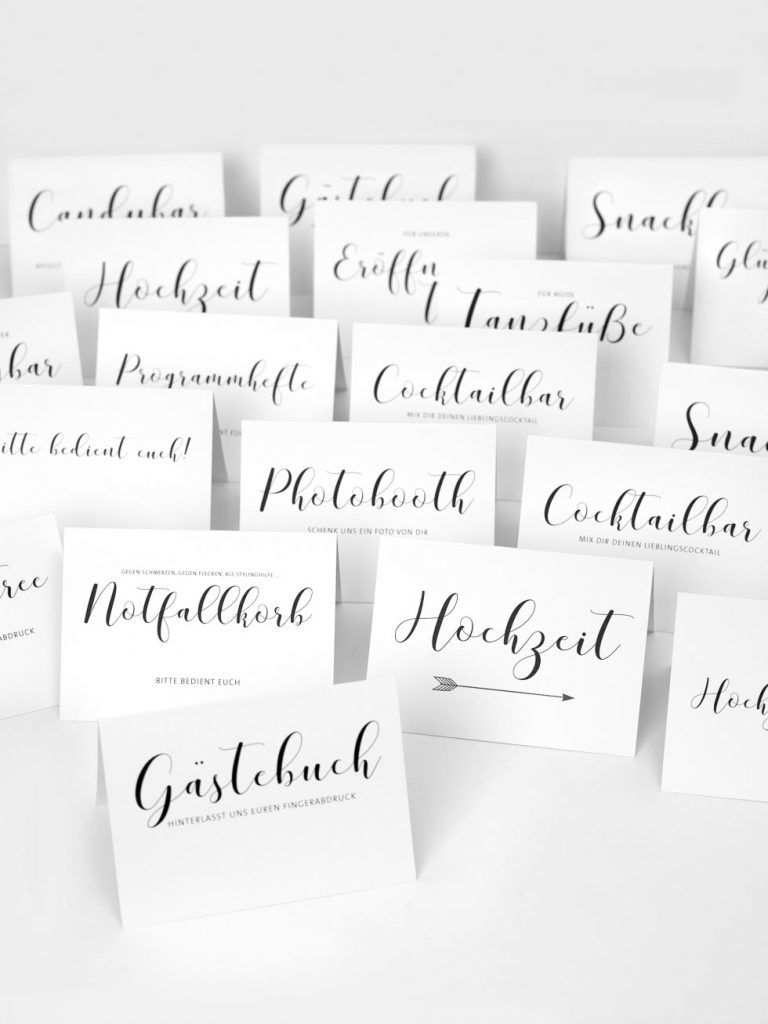 Candybar
Gästebuch
Snackb
Hochzeit
FÜR UNSEREN
Eröffn
FÜR MÜDE
Tanzfüße
Glü
bar
Programmhefte
Cocktailbar
MIX DIR DEINEN LIEBLINGSCOCKTAIL
Snac
itte bedient euch!
Photobooth
SCHENK UNS EIN FOTO VON DIR
Cocktailbar
MIX DIR DEINEN LIEBLINGSCOCKTAIL
ree
ABDRUCK
GEGEN SCHMERZEN, GEGEN FLECKEN, ALS STYLINGHILFE...
Notfallkorb
BITTE BEDIENT EUCH
Hochzeit
Hochz
Gästebuch
HINTERLASST UNS EUREN FINGERABDRUCK